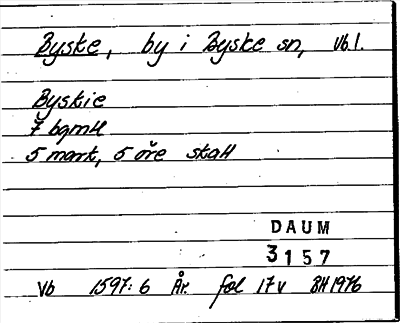 Byske, by i Byske sn, Vb l.
Byskie
7 bgmH
5 mark, 5 öre skaH
DAUM
3157
Vb 1597:6 År. fol 17v BH 1976